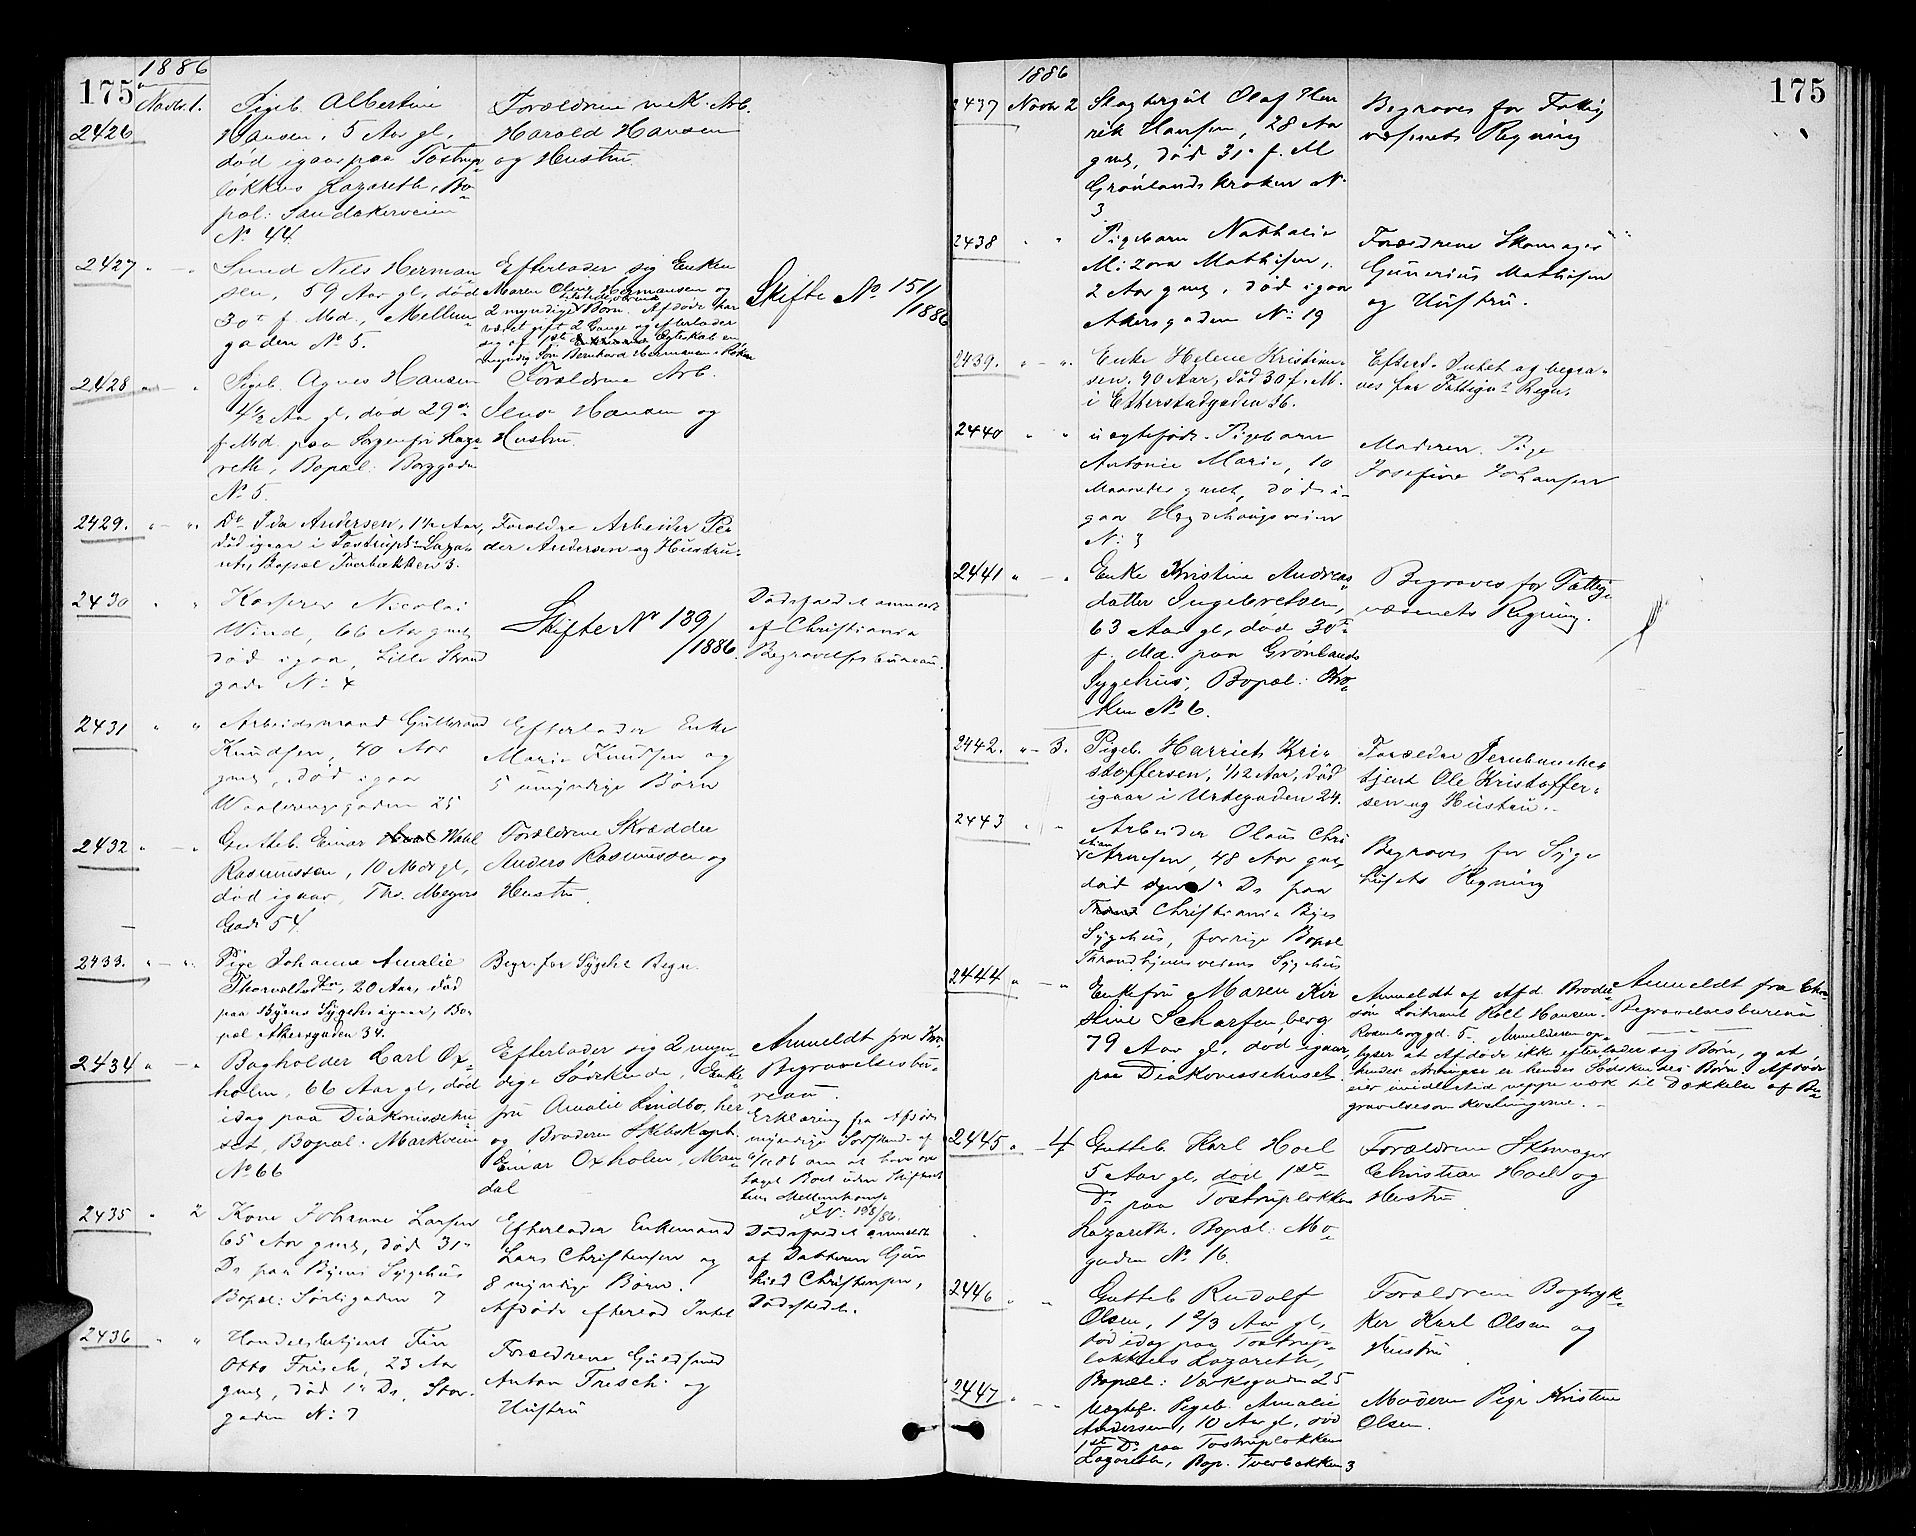 175
1886
Novbr. 1.
2426
Pigeb. Albertine
Hansen, 5 Aar gl,
død igaar paa Tostrup
løkkens Lazareth, Bo
pæl: Sandakerveien
No 44
Forældrene mek. Arb.
Harald Hansen
og Hustru
2427
Smed Nils Herman
sen, 59 Aar gl, død
30te f. Md., Mellem
gaden No 5.
Efterlader sig Enken
Maren Oline Hermansen og
2 myndige Børn. Afdøde har
været gift 2 Gange og efterlader
sig af 1ste Ægteskab en
myndig Søn Bernhard Hermansen i Røken
Skifte No 151/
/1886
2428
Pigeb. Agnes Hansen
4½ Aar gl, død 29de
f. Md. paa Sorgenfri Laza
reth, Bopæl: Borggaden
No 5.
Forældrene Arb.
Jens Hansen og
Hustru.
2429.
Do Ida Andersen, 1½ Aar,
død igaar i Tostrupl. Laza
reth, Bopæl Tverbakken 3.
Forældre Arbeider Pe
der Andersen og Hustru.
2430
Kasserer Nicolai
Wind, 66 Aar gml,
død igaar, Lille Strand
gade No 4
Skifte No 139/
/1886.
Dødsfaldet anmeldt
af Christiania
Begravelsesbureau.
2431
Arbeidsmand Gulbrand
Knudsen, 40 Aar
gml, død igaar
Waalerenggaden 25
Efterlader Enke
Marie Knudsen og
5 umyndige Børn
2432
Gutteb. Einar Wahl
Rasmussen, 10 Mdr gl,
død igaar, Ths. Meyers
Gade 54.
Forældrene Skrædder
Anders Rasmussen og
Hustru.
2433.
Pige Johanne Amalie
Thorvaldsdtr, 20 Aar, død
paa Byens Sygehs igaar, Bo
pæl Akersgaden 34.
Begr. for Sygehs Regn.
2434
Bogholder Carl Ox
holm, 66 Aar gl, død
idag paa Diakonissehu
set, Bopæl: Markveien
No 66
Efterlader sig 2 myn
dige Sødskende, Enke
fru Amalie Lindbo, her
og Broderen Skibskapt.
Einar Oxholm, Man
dal
Anmeldt fra Chr.
Begravelsesbu
reau.
Erklæring fra Afdødes
myndige Sødskende af
6/11 86 om at have over
taget Boet uden Skifteret
tens Mellemkomst
2435
2
Kone Johanne Larsen
65 Aar gml, død 31te
Ds paa Byens Sygehus
Bopæl: Sørligaden 7
Efterlader Enkemand
Lars Christensen og
8 myndige Børn.
Afdøde efterlod Intet
Dødsfaldet anmeldt
af Datteren Gun
hild Christensen,
Dødsstedet.
2436
Handelsbetjent Finn
Otto Frisch, 23 Aar
gml, død 1ste Ds, Stor
gaden No 7
Forældrene Guldsmed
Anton Frisch og
Hustru
175
1886
2437
Novbr 2
Slagtergut Olaf Hen
rik Hansen, 28 Aar
gml, død 31te f. M
Grønlandskroken No
3
Begraves for Fattig
væsenets Regning
2438
Pigebarn Nathalie
Mizora Mathisen,
2 Aar gml, død igaar
Akersgaden No 19
Forældrene Skomager
Gunerius Mathisen
og Hustru.
2439.
Enke Helene Kristian
sen, 90 Aar, død 30 f. M.
i Etterstadgaden 16.
Efterl. Intet og begra
ves for Fattigvs Regn.
2440
uægtefødt Pigebarn
Antonie Marie, 10
Maaneder gmel, død i
gaar Hegdehaugsveien
No 3
Moderen Pige
Josefine Johansen
2441
Enke Kristine Andreas
datter Ingebretsen,
63 Aar gl, død 30te
f. Md. paa Grønlands
Sygehus, Bopæl: Kro
ken No 6.
Begraves for Fattig
væsenets Regning.
2442.
3.
Pigeb. Harriet Kri
stoffersen, 1/12 Aar, død
igaar i Urtegaden 24.
Forældre Jernbanebe
tjent Ole Kristoffer
sen og Hustru.
2443
Arbeider Olaus Chri
stian
Arnesen, 48 Aar gml
død Ds paa
Christiania Byes
Sygehus, forrige Bopæl
Throndhjemsveiens Sygehus
Begraves for Syge
husets Regning
2444
Enkefru Maren Kir
stine Scharfenberg
79 Aar gl, død igaar,
paa Diakonissehuset.
Anmeldt af Afd. Broder
søn Løitnant Holl Hansen.
Rosenborggd. 5. Anmelderen op
lyser at Afdøde ikke efterlader sig Børn, og at
hendes Arvinger er hendes Sødskendes Børn. Afdøde
eier imidlertid neppe nok til Dækkelse af Be
gravelsesomkostningerne.
Anmeldt fra Chra
Begravelsesbureau
2445
4
Gutteb. Karl Hoel
5 Aar gl, død 1ste
Ds paa Tostrupløkken
Lazareth. Bopæl: Mo
gaden No 16
Forældrene Skomager
Christian Hoel og
Hustru
2446
Gutteb Rudolf
Olsen, 1 2/3 Aar gl,
død idag paa Tostrup
løkkens Lazareth,
Bopæl: Værksgaden 25
Forældrene Bogtryk
ker Karl Olsen og
Hustru
2447
Uægtef. Pigeb. Amalie
Andersen, 10 Aar gl, død
1ste Ds paa Tostrupløkken
Lazareth, Bop. Tverbakken 3
Moderen Pige Kristine
Olsen.